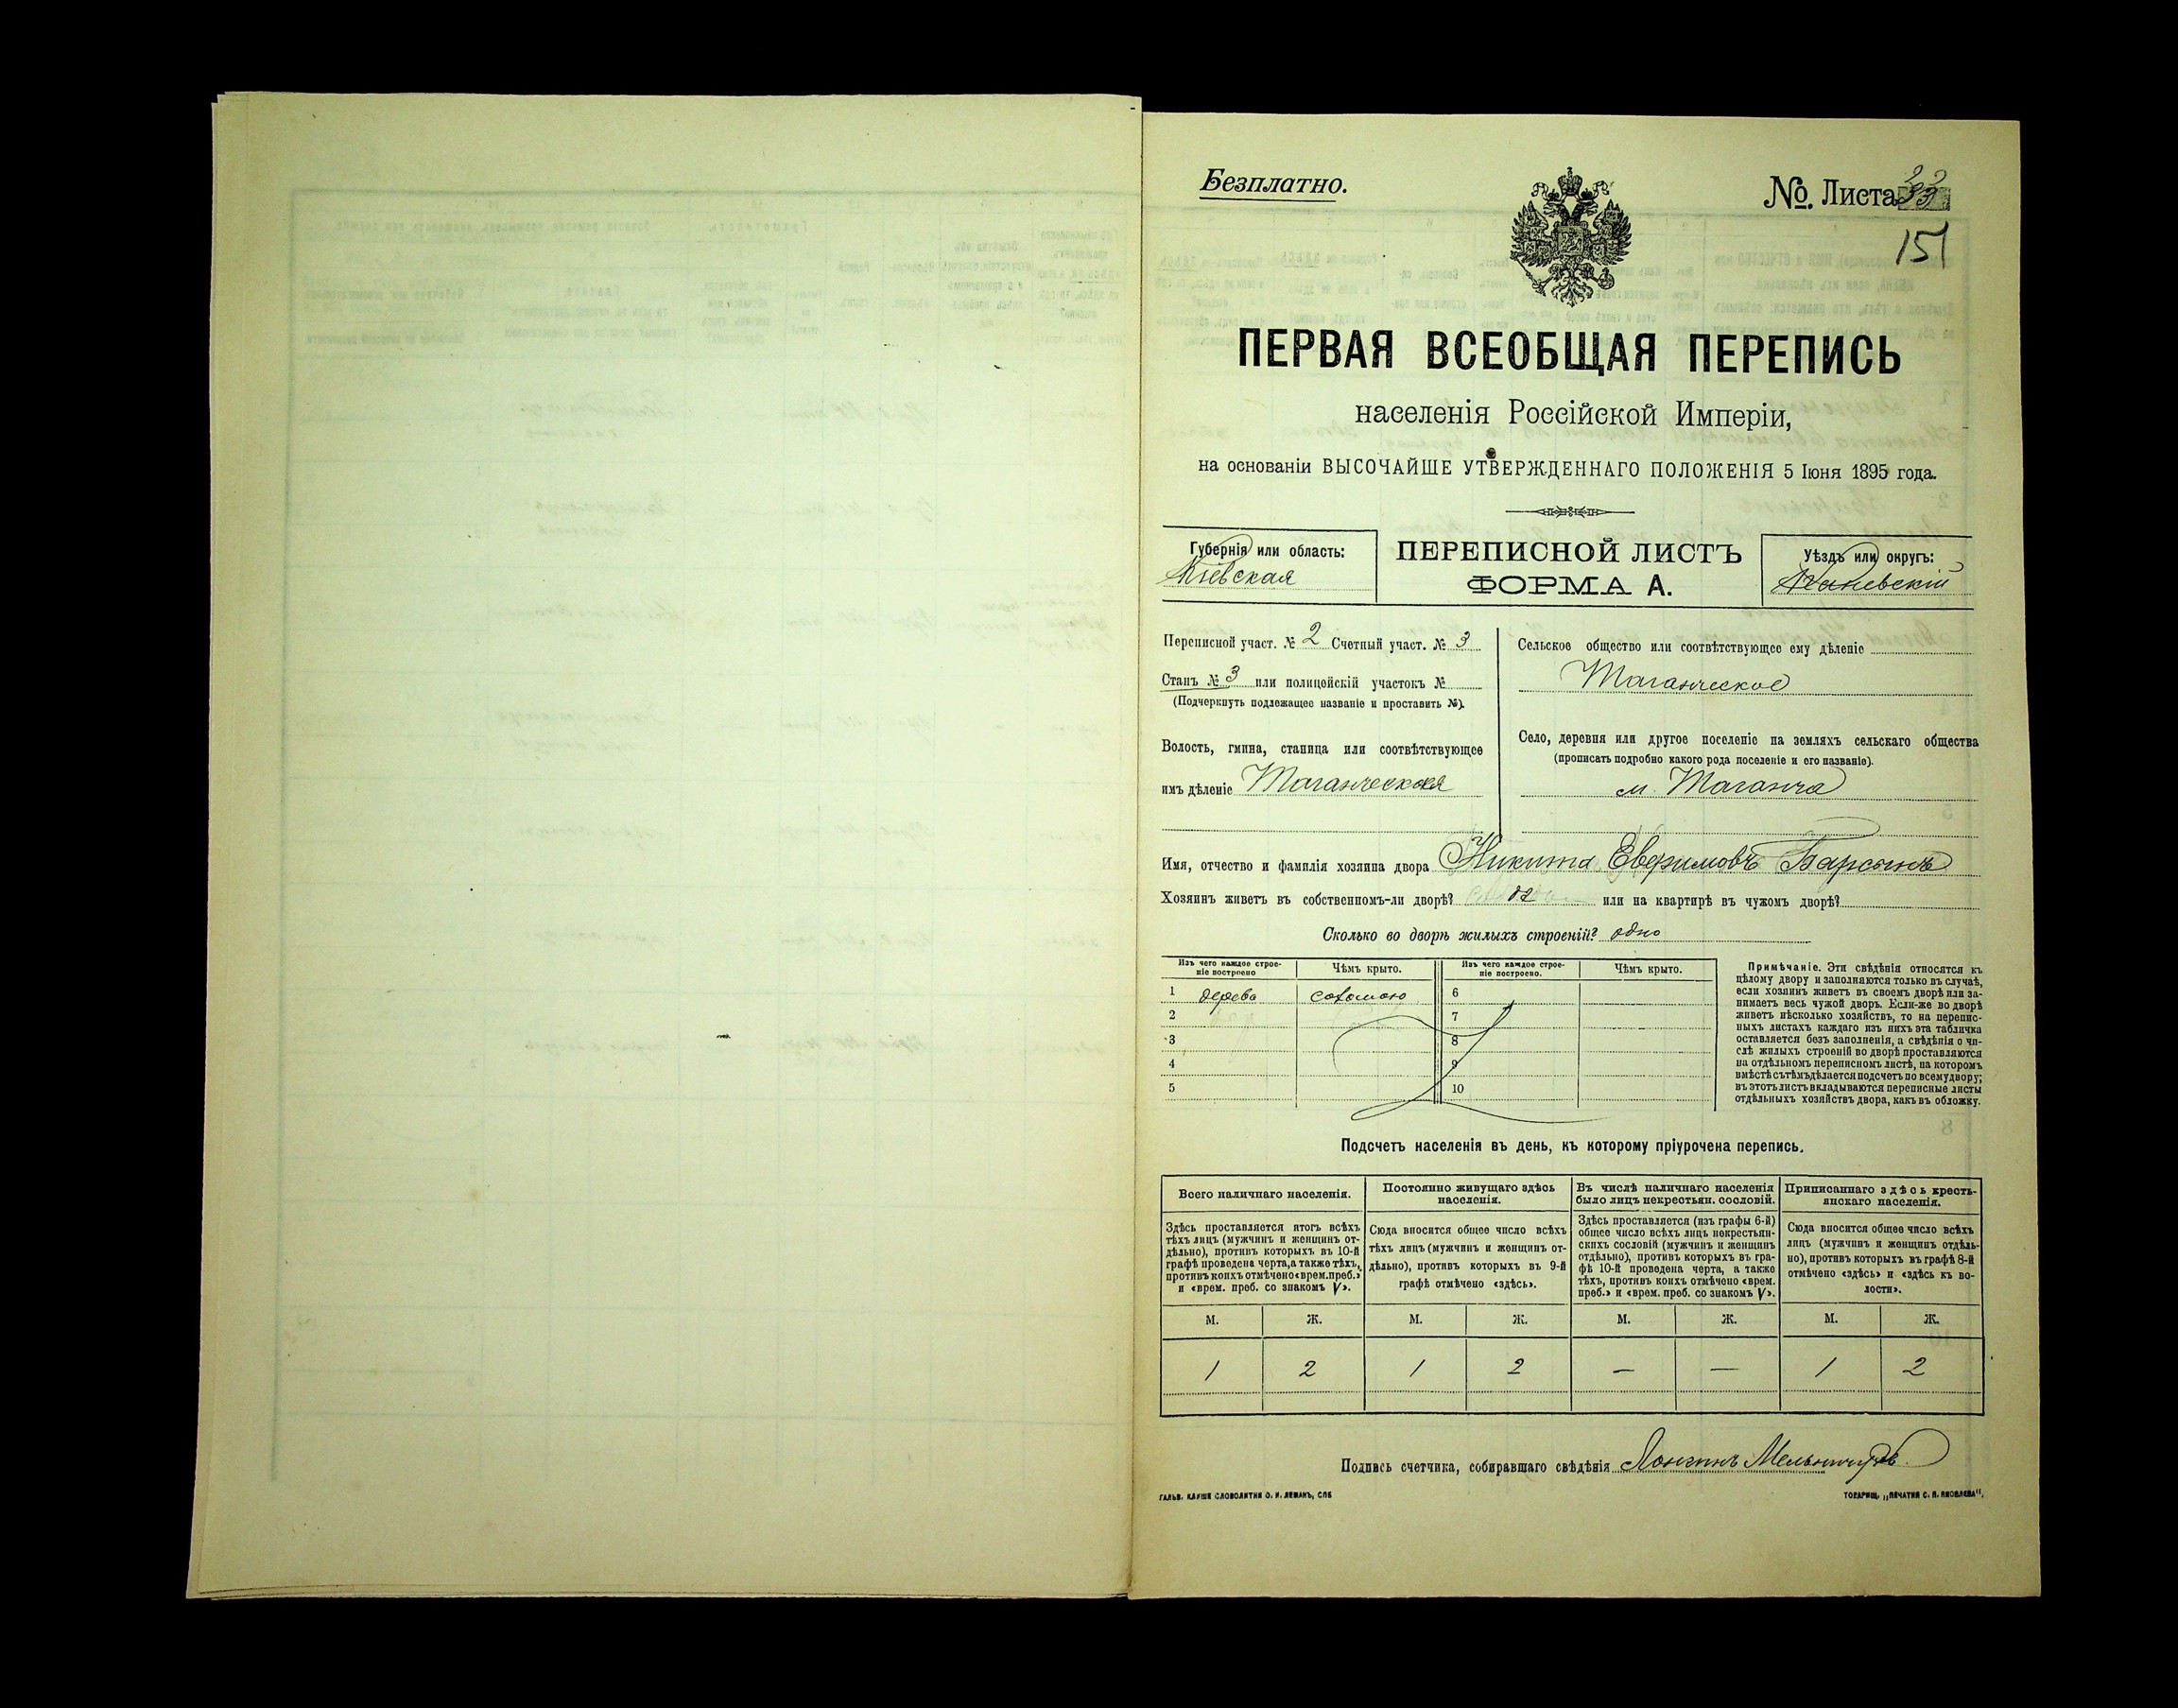 Безплатно.
№. Листа 33
151
ПЕРВАЯ ВСЕОБЩАЯ ПЕРЕПИСЬ
населенія Россійской Имперіи,
на основаніи ВЫСОЧАЙШЕ УТВЕРЖДЕННАГО ПОЛОЖЕНІЯ 5 Іюня 1895 года.
Губернія или область:
Кіевская
ПЕРЕПИСНОЙ ЛИСТЪ
ФОРМА А.
Уѣздъ или округъ:
Каневскій
Переписной участ. № 2 Счетный участ. № 3
Станъ № 3 или полицейскій участокъ №
(Подчеркнуть подлежащее названіе и проставить №).
Волость, гмина, станица или соотвѣтствующее
имъ дѣленіе Таганческая
Сельское общество или соотвѣтствующее ему дѣленіе
Таганческое
Село, деревня или другое поселеніе на земляхъ сельскаго общества
(прописать подробно какого рода поселеніе и его названіе).
м. Таганча
Имя, отчество и фамилія хозяина двора Никита Евфимовъ
Хозяинъ живетъ въ собственномъ-ли дворѣ? да или на квартирѣ въ чужомъ дворѣ?
Сколько во дворѣ жилыхъ строеній? одно
Изъ чего каждое строе-
ніе построено
Чѣмъ крыто.
Изъ чего каждое строе-
ніе построено.
Чѣмъ крыто.
1 дерева соломою 6
2 7
3 8
4 9
5 10
Примѣчаніе. Эти свѣдѣнія относятся къ
цѣлому двору и заполняются только въ случаѣ,
если хозяинъ живетъ въ своемъ дворѣ или за-
нимаетъ весь чужой дворъ. Если-же во дворѣ
живетъ нѣсколько хозяйствъ, то на перепис-
ныхъ листахъ каждаго изъ нихъ эта табличка
оставляется безъ заполненія, а свѣдѣнія о чи-
слѣ жилыхъ строеній во дворѣ проставляются
на отдѣльномъ переписномъ листѣ, на которомъ
вмѣстѣ съ тѣмъ дѣлается подсчетъ по всему двору;
въ этотъ листъ вкладываются переписные листы
отдѣльныхъ хозяйствъ двора, какъ въ обложку.
Подсчетъ населенія въ день, къ которому пріурочена перепись.
Всего наличнаго населенія.
Постоянно живущаго здѣсь
населенія.
Въ числѣ наличнаго населенія
было лицъ некрестьян. сословій.
Приписаннаго здѣсь кресть-
янскаго населенія.
Здѣсь проставляется итогъ всѣхъ
тѣхъ лицъ (мужчинъ и женщинъ от-
дѣльно), противъ которыхъ въ 10-й
графѣ проведена черта, а также тѣхъ,
противъ коихъ отмѣчено «врем. преб.»
и «врем. преб. со знакомъ V».
Сюда вносится общее число всѣхъ
тѣхъ лицъ (мужчинъ и женщинъ от-
дѣльно), противъ которыхъ въ 9-й
графѣ отмѣчено «здѣсь».
Здѣсь проставляется (изъ графы 6-й)
общее число всѣхъ лицъ некрестьян-
скихъ сословій (мужчинъ и женщинъ
отдѣльно), противъ которыхъ въ гра-
фѣ 10-й проведена черта, а также
тѣхъ, противъ коихъ отмѣчено «врем.
преб.» и «врем. преб. со знакомъ V».
Сюда вносится общее число всѣхъ
лицъ (мужчинъ и женщинъ отдѣль-
но), противъ которыхъ въ графѣ 8-й
отмѣчено «здѣсь» и «здѣсь къ во-
лости».
М. Ж. М. Ж. М. Ж. М. Ж.
1 2 1 2 — — 1 2
Подпись счетчика, собиравшаго свѣдѣнія Лонгинъ
ГАЛЬВ. КЛИШЕ СЛОВОЛИТНИ О. И. ЛЕМАНЪ, СПБ
ТОВАРИЩ. „ПЕЧАТНЯ С. П. ЯКОВЛЕВА".